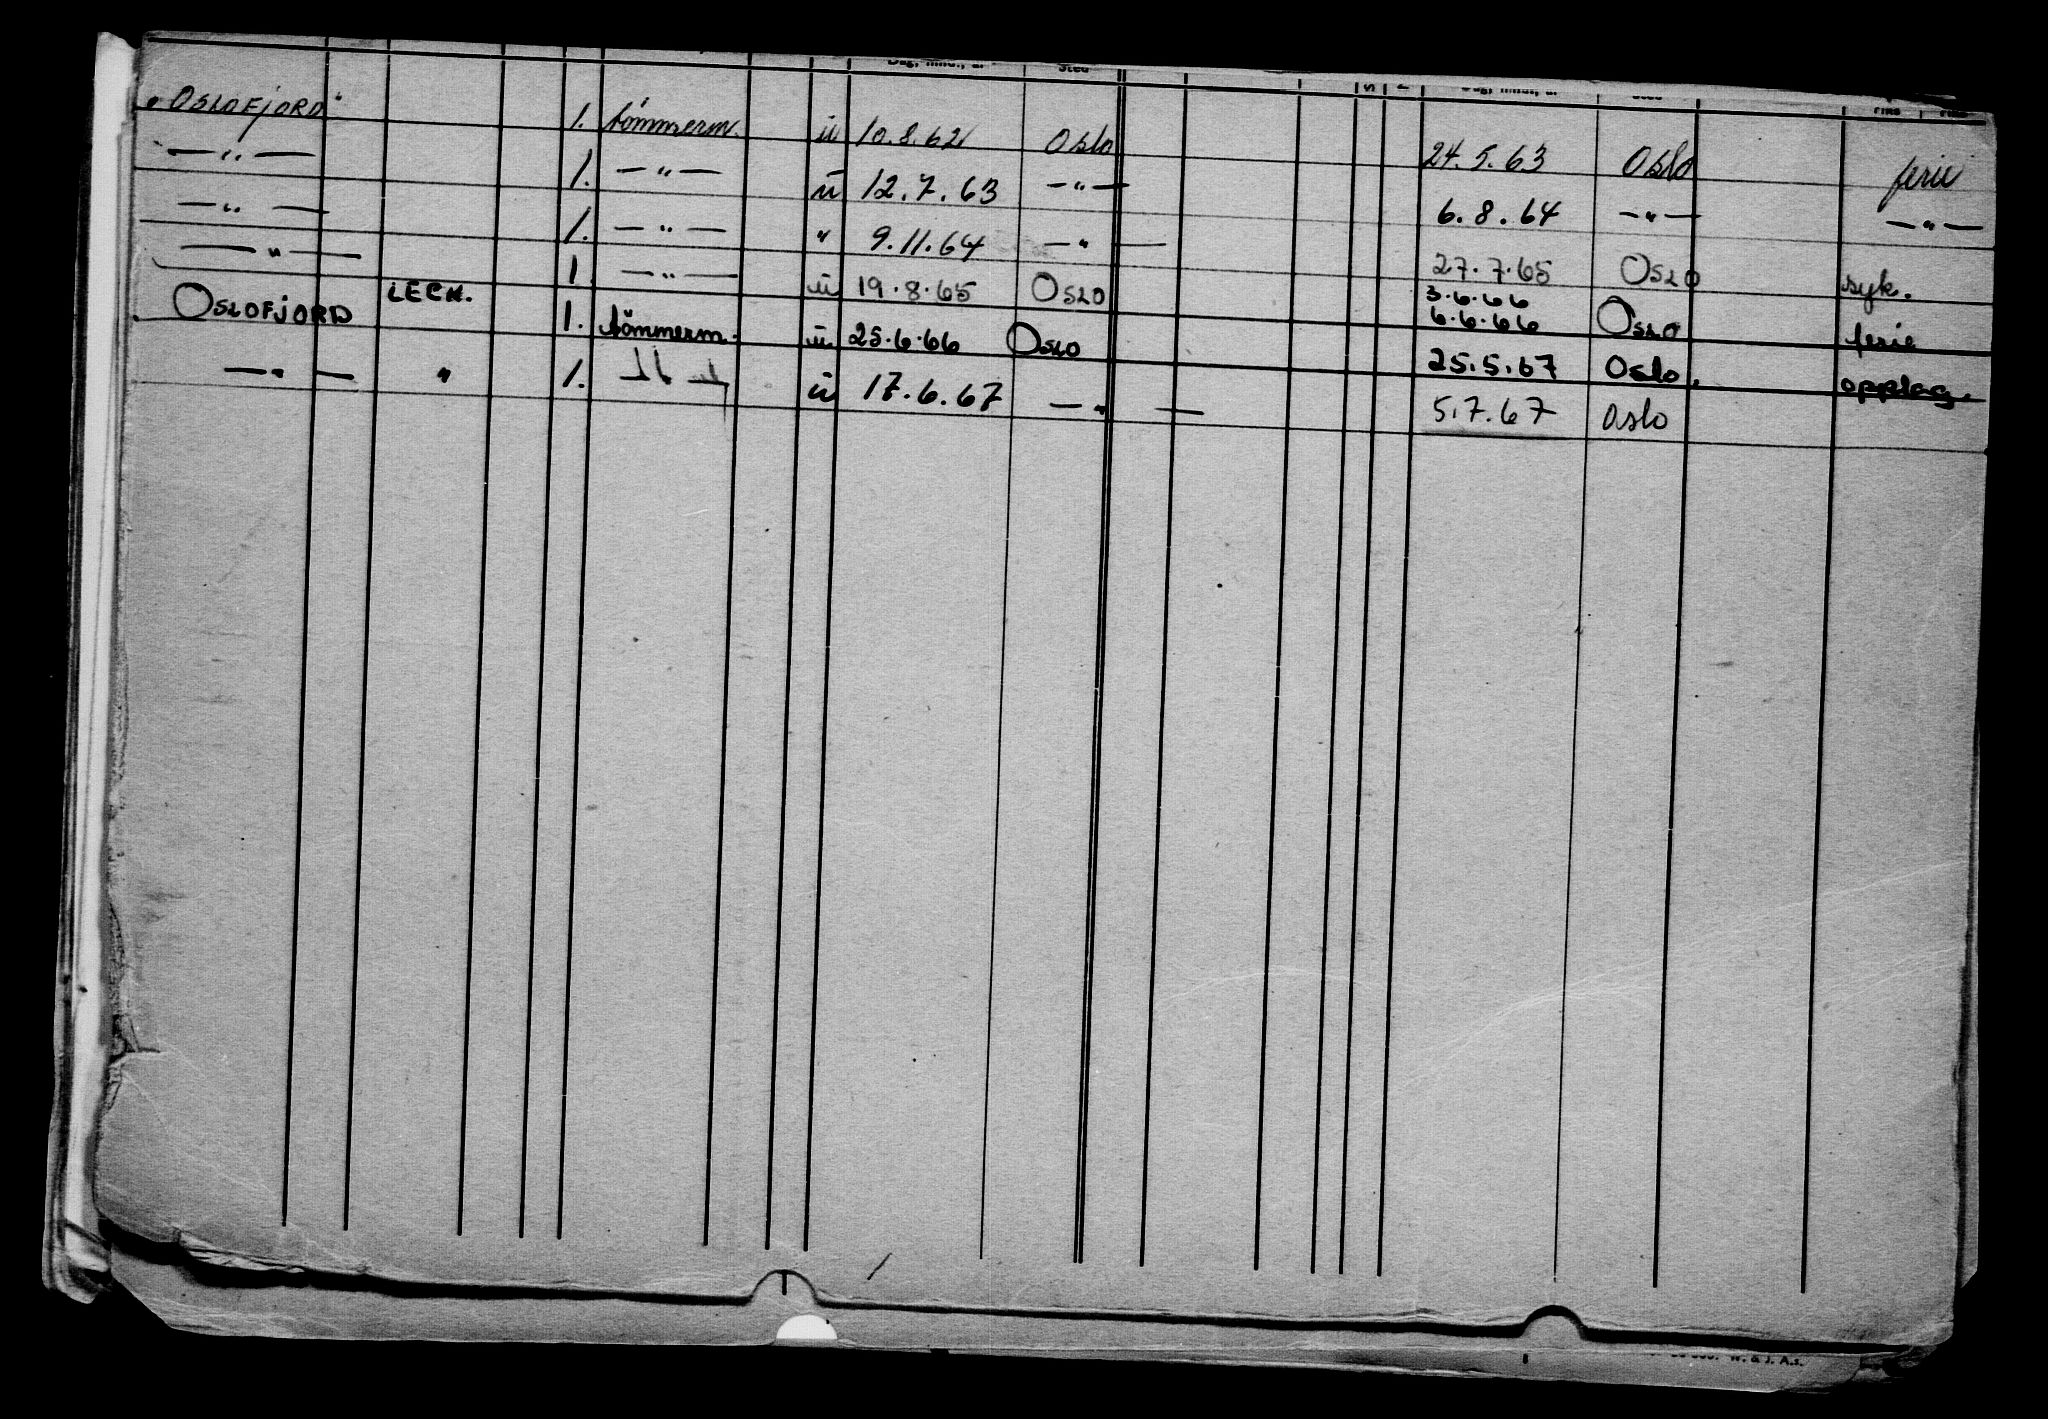 Dag, mnd., år Sted S Dag, mnd., år Sted
"OSLOFJORD" 1. tömmerm. u 10.8.62 Oslo 24.5.63 Oslo ferie
—"— 1. —"— u 12.7.63 —"— 6.8.64 —"— —"—
—"— 1. —"— " 9.11.64 —"— 27.7.65 OSLO syk.
—"— 1. —"— u 19.8.65 OSLO 3.6.66 6.6.66 OSLO ferie
OSLOFJORD LECH. 1. tömmerm. u 25.6.66 OSLO 25.5.67 Oslo. opplag.
—"— " 1. u 17.6.67 —"— 5.7.67 Oslo
W. & J. A.s.